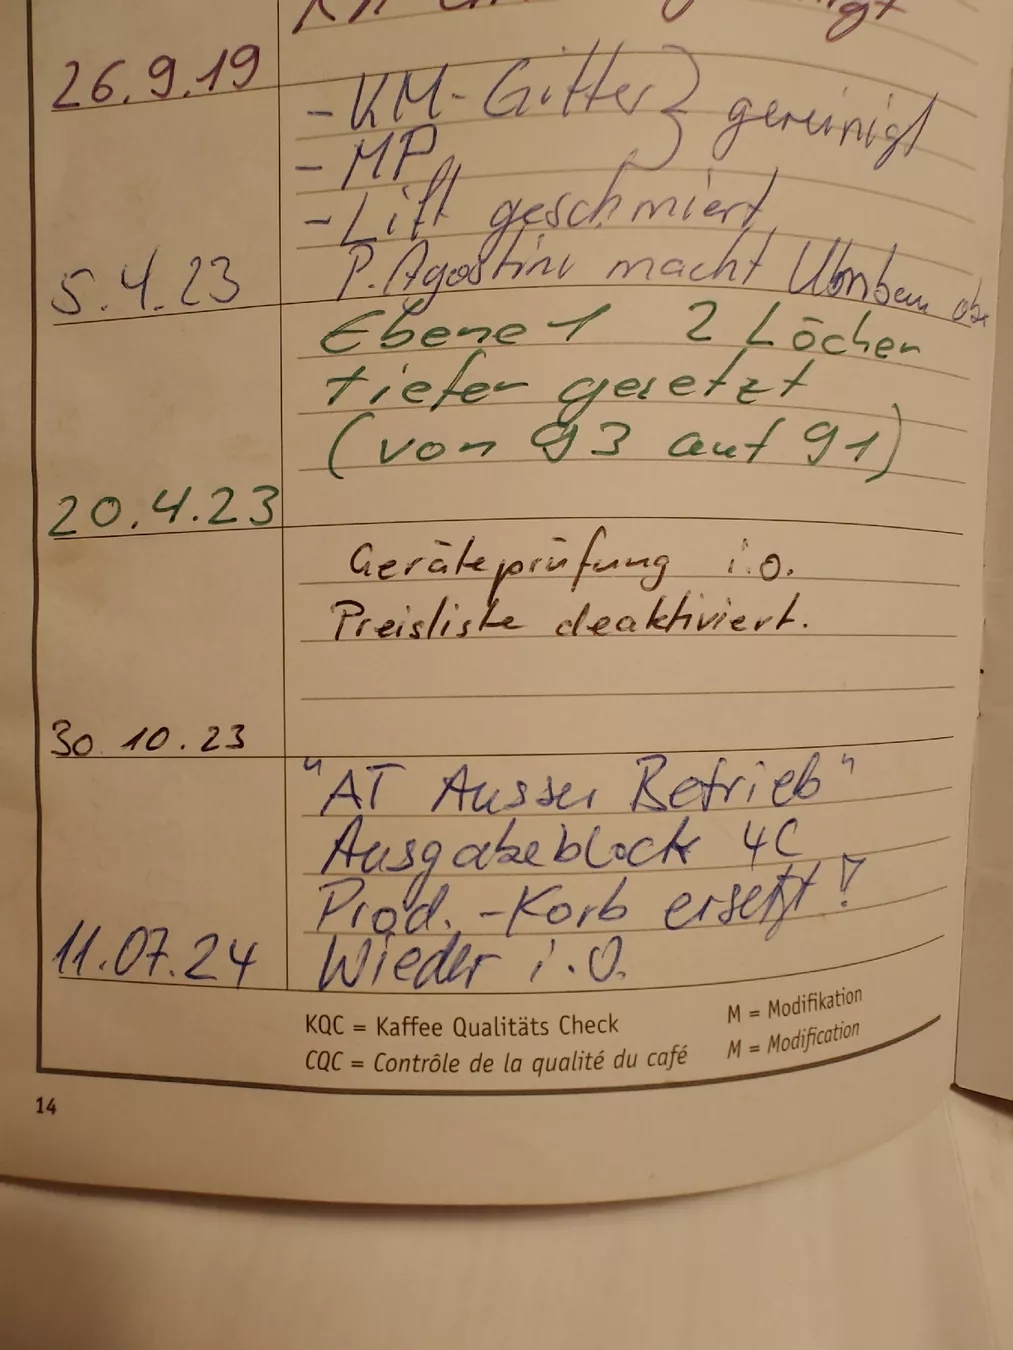 26.9.19
- KM-Gitter } gereinigt
- MP
- Lift geschmiert
5.4.23 P. Agostini macht Umbau
Ebene 1 2 Löcher
tiefer gesetzt
(von 93 auf 91)
20.4.23
Geräteprüfung i.o.
Preisliste deaktiviert.
30.10.23
"AT Ausser Betrieb"
Ausgabeblock 4C
Prod.-Korb ersetzt!
11.07.24 Wieder i.O.
KQC = Kaffee Qualitäts Check M = Modifikation
CQC = Contrôle de la qualité du café M = Modification
14